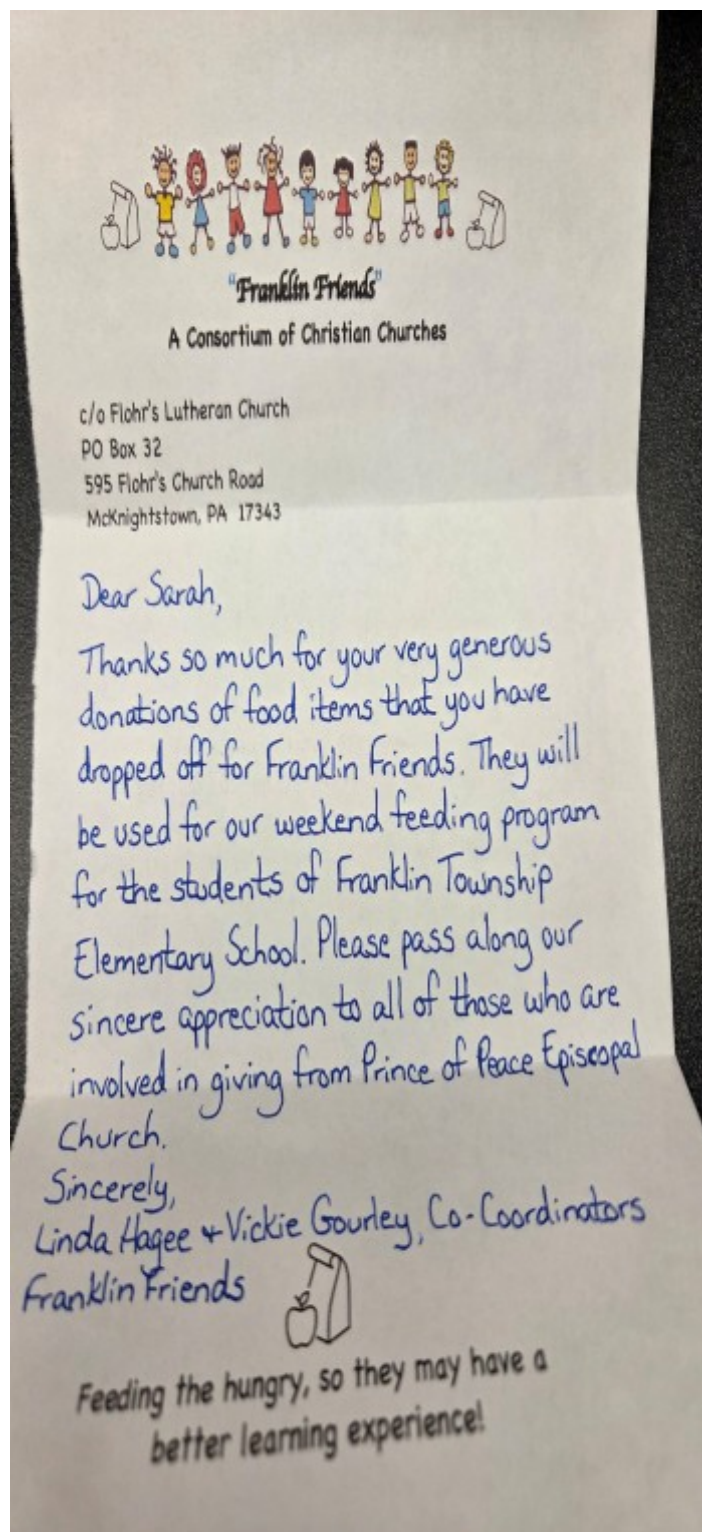 "Franklin Friends"
A Consortium of Christian Churches
c/o Flohr's Lutheran Church
PO Box 32
595 Flohr's Church Road
McKnightstown, PA 17343
Dear Sarah,
Thanks so much for your very generous
donations of food items that you have
dropped off for Franklin Friends. They will
be used for our weekend feeding program
for the students of Franklin Township
Elementary School. Please pass along our
sincere appreciation to all of those who are
involved in giving from Prince of Peace Episcopal
Church.
Sincerely,
Linda Hagee + Vickie Gourley, Co-Coordinators
Franklin Friends
Feeding the hungry, so they may have a
better learning experience!